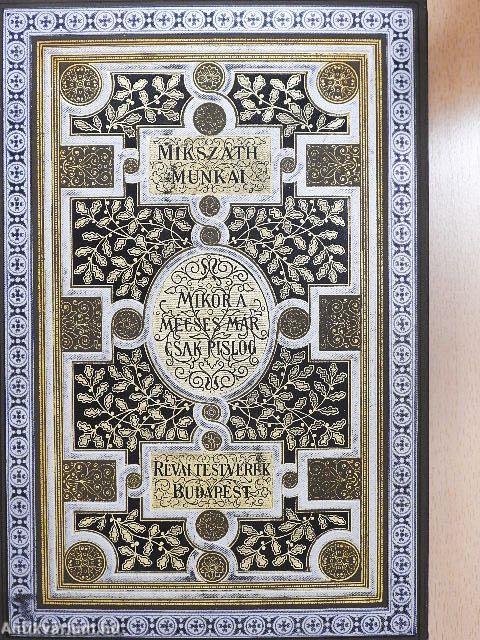 MIKSZÁTH
MUNKÁI
MIKOR A
MÉCSES MÁR
CSAK PISLOG
RÉVAI TESTVÉREK
BUDAPEST
Antikvarium.hu